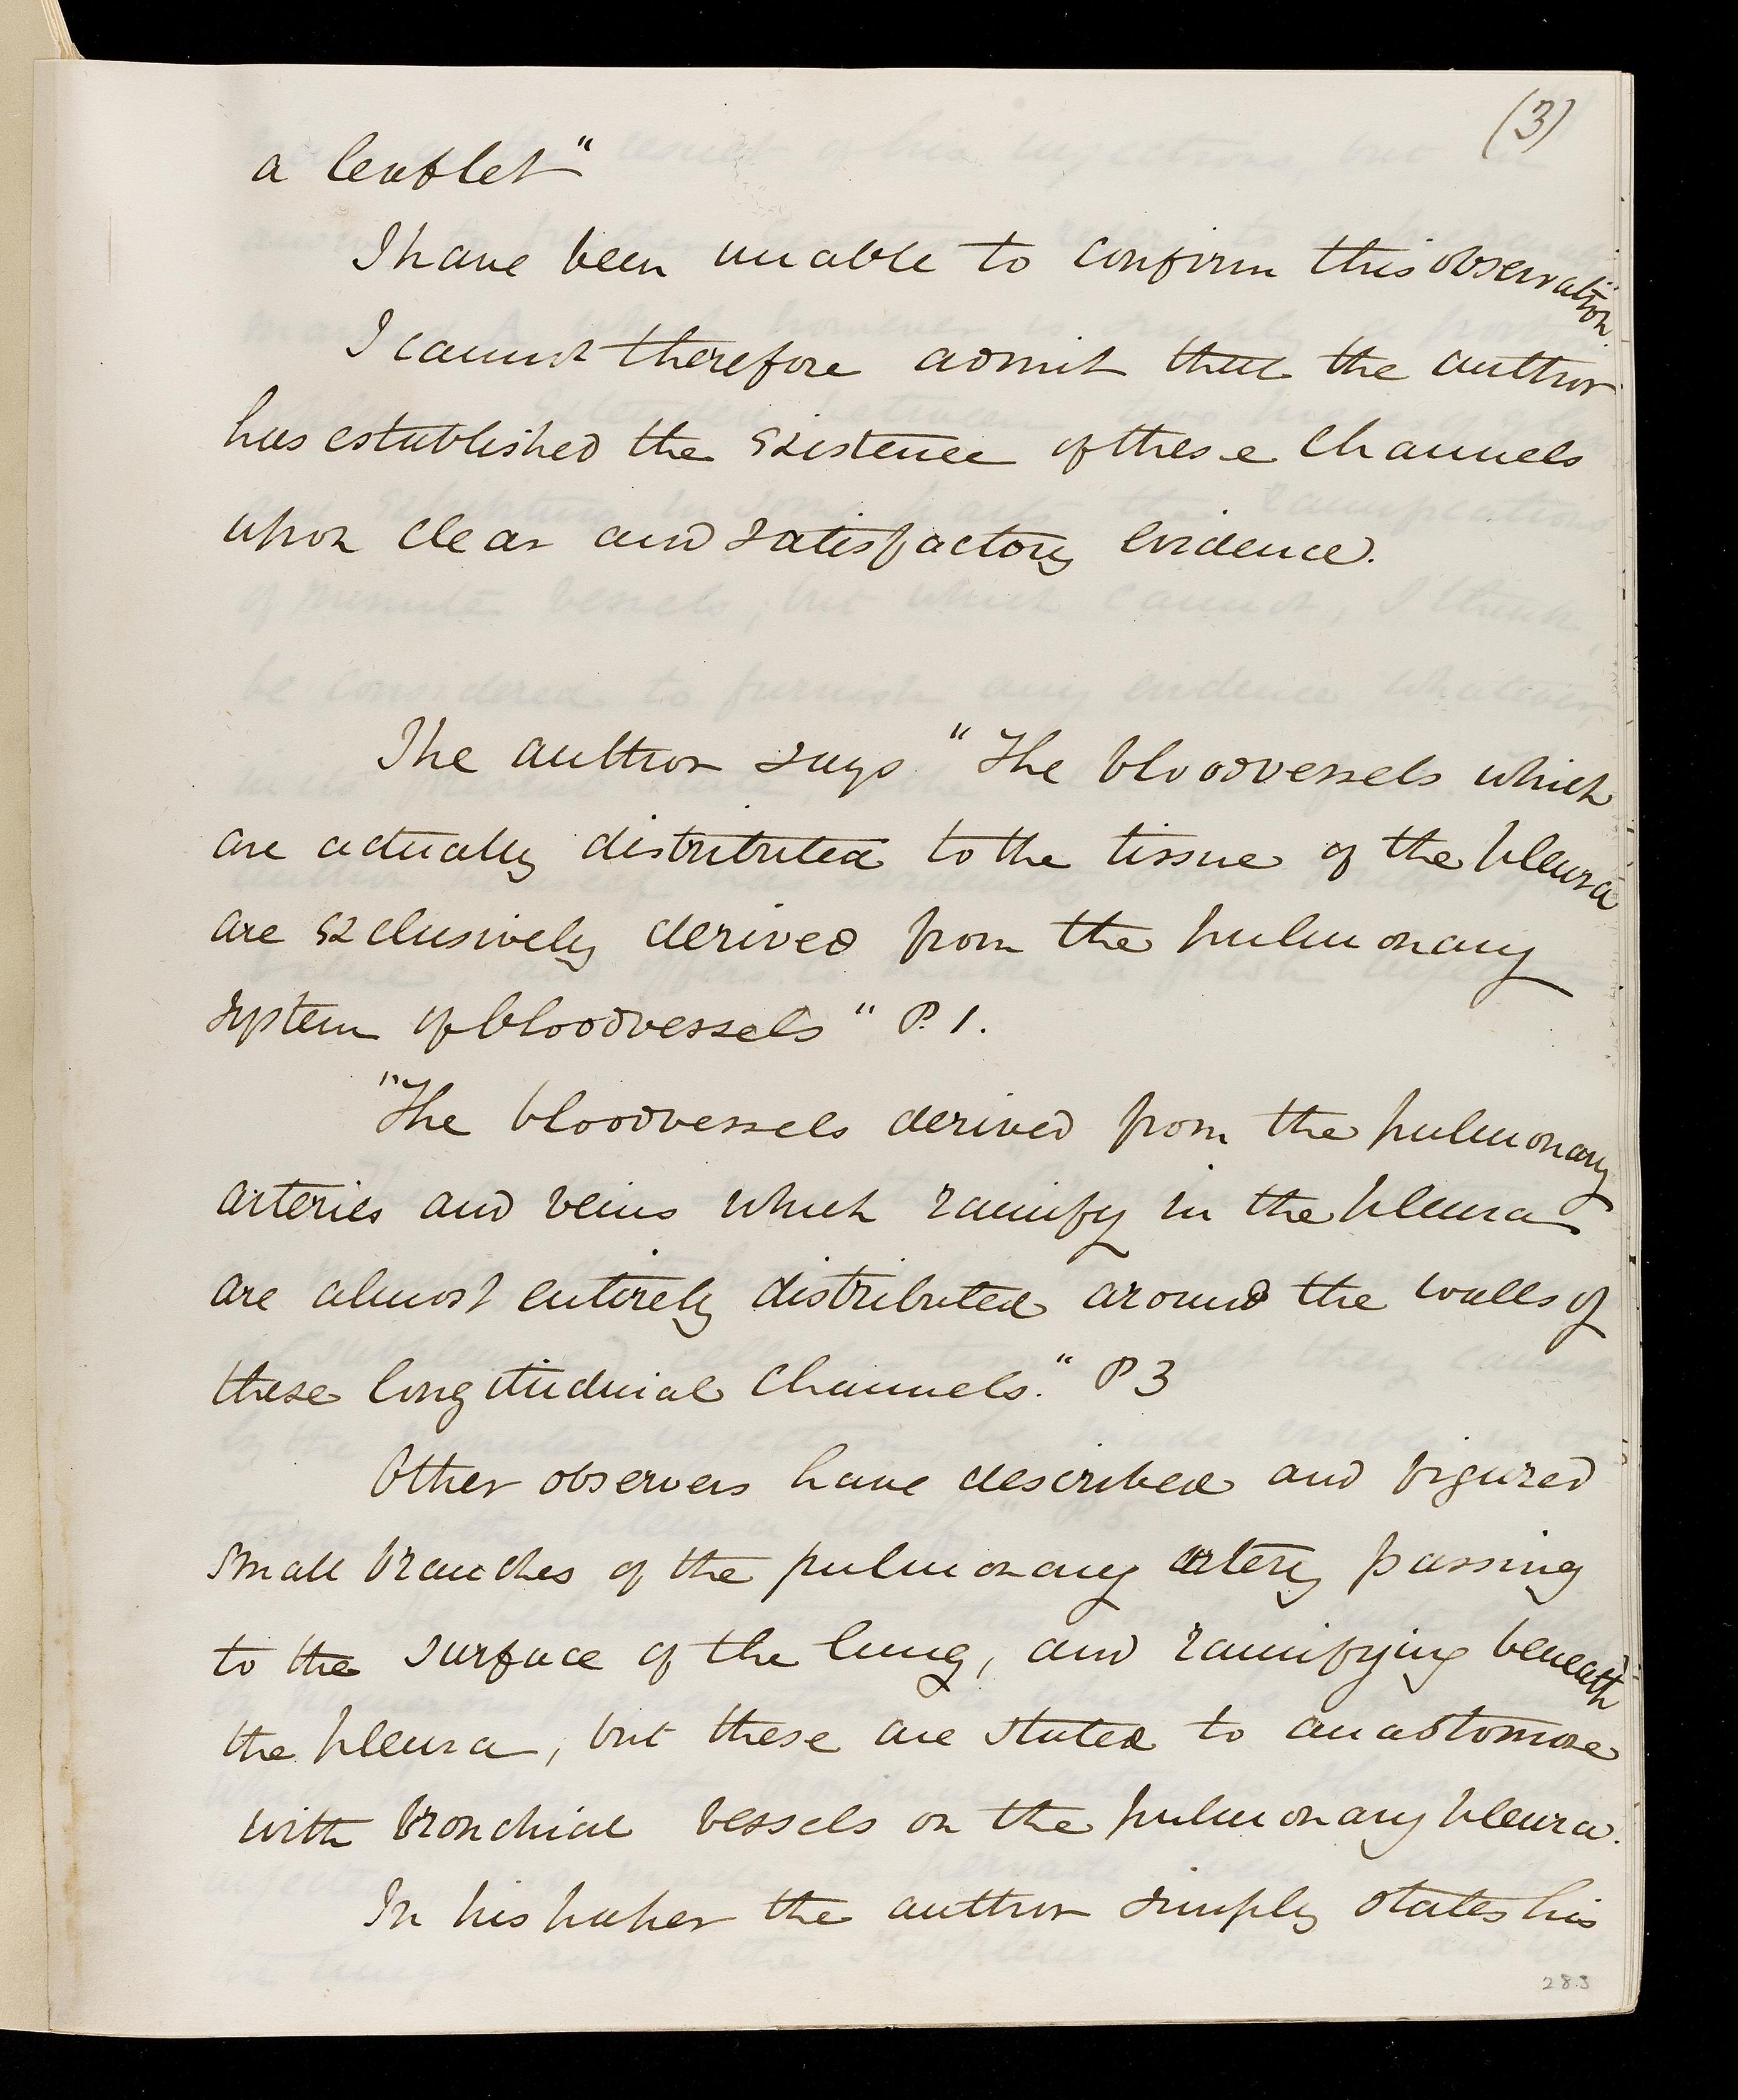 (3)
a leaflet"
I have been unable to confirm this observation.
I cannot therefore admit that the author
has established the existence of these channels
upon clear and satisfactory evidence.
The author says "The bloodvessels which
are actually distributed to the tissue of the pleura
are exclusively derived from the pulmonary
system of bloodvessels" P. 1.
"The bloodvessels derived from the pulmonary
arteries and veins which ramify in the pleura
are almost entirely distributed around the walls of
these longitudinal channels." P 3
Other observers have described and figured
small branches of the pulmonary artery passing
to the surface of the lung, and ramifying beneath
the pleura, but these are stated to anastomose
with bronchial vessels on the pulmonary pleura.
In his paper the author simply states his
283